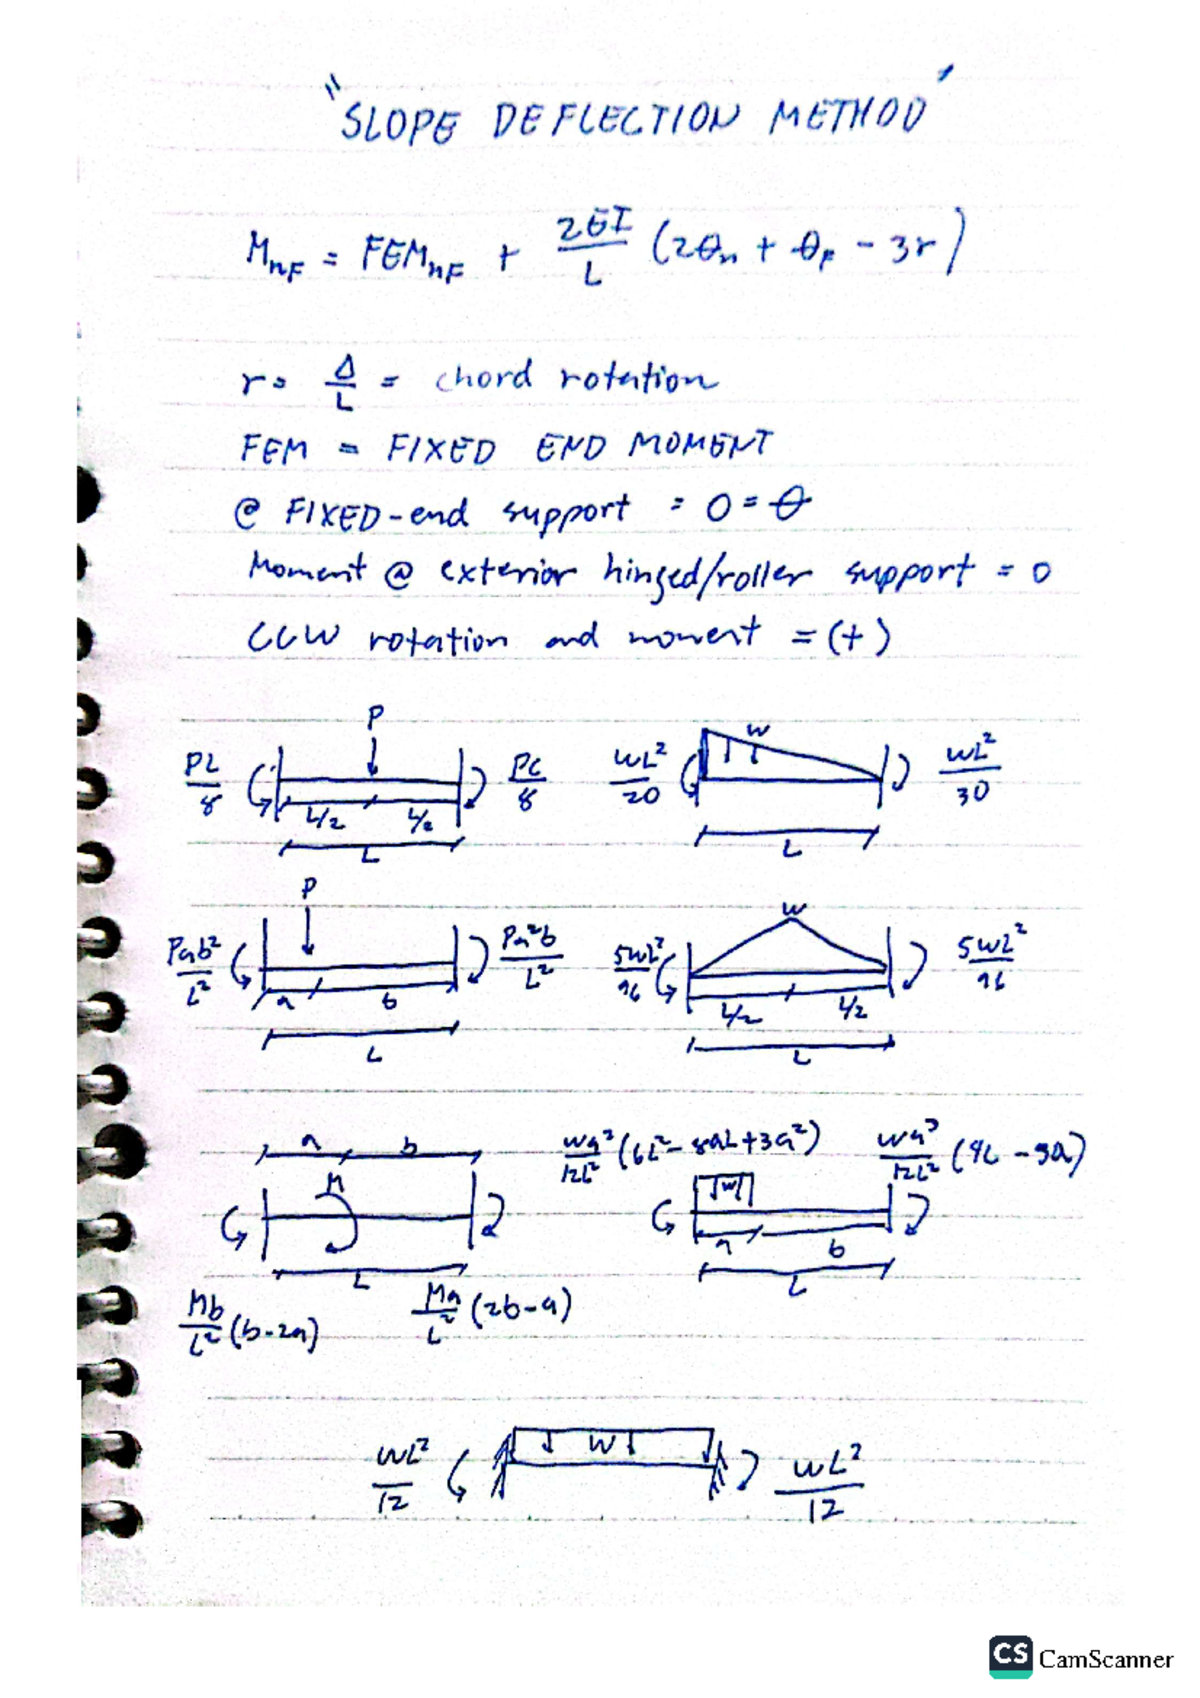 "SLOPE DEFLECTION METHOD"
M_nF = FEM_nF + 2EI/L (2θ_n + θ_F - 3r)
r = Δ/L = chord rotation
FEM = FIXED END MOMENT
@ FIXED-end support = 0 = θ
Moment @ exterior hinged/roller support = 0
CCW rotation and moment = (+)
P
PL/8 PL/8
L/2 L/2
L
w
wL²/20 wL²/30
L
P
Pab²/L² Pa²b/L²
a b
L
w
5wL²/96 5wL²/96
L/2 L/2
L
a b
M
L
Mb/L² (b-2a) Ma/L² (2b-a)
wa²/12L² (6L² - 8aL + 3a²) wa³/12L² (4L - 3a)
w
a b
L
wL²/12 w wL²/12
CS CamScanner